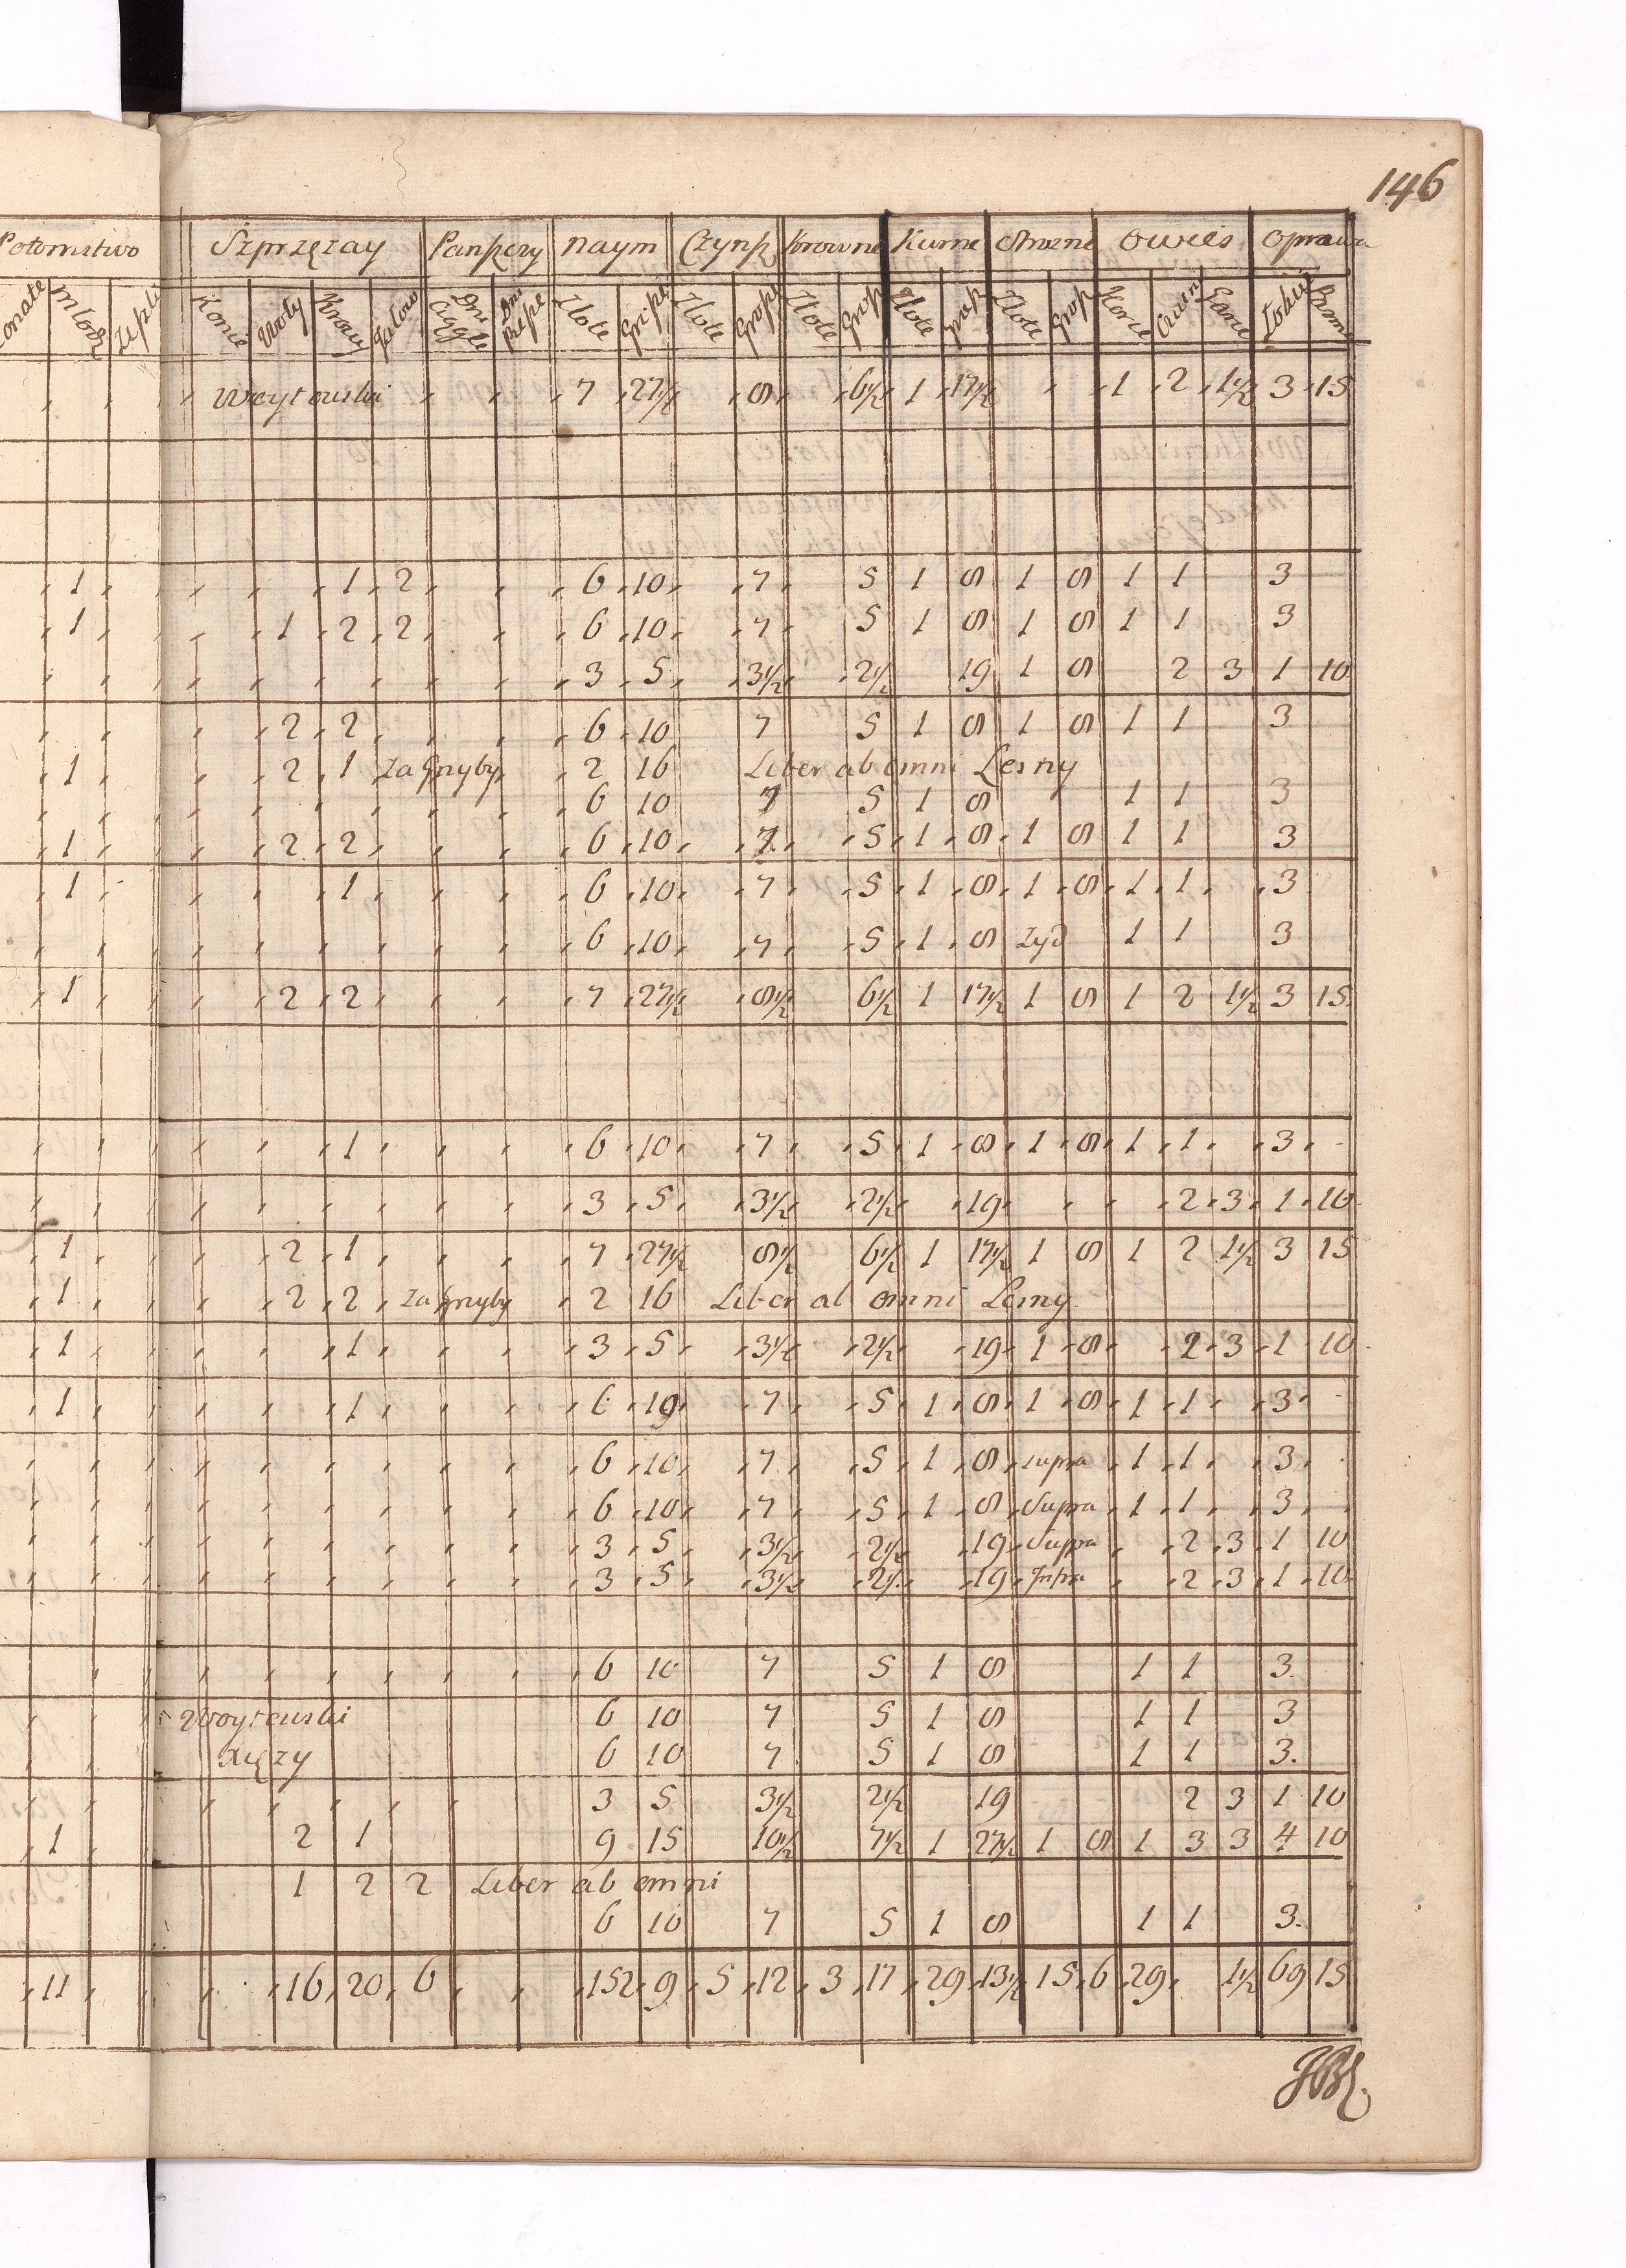 146
Potomstwo Szprzęzay Panszczy naym Czynsz Krowne Kurne Strozne Owies Oprawa
młodz Konie Woły Krowy Jałow Dni Ciągłe Dni Piesze Złote Zlote Grosz Zlote Grosz Zlote Zlote Grosz Korce Garnce
Woytowski 7 27½ 8 6½ 1 17½ 1 2 1½ 3 15
1 1 2 6 10 7 5 1 8 1 8 1 1 3
1 1 2 2 6 10 7 5 1 8 1 8 1 1 3
3 5 3½ 2½ 19 1 8 2 3 1 10
2 2 6 10 7 5 1 8 1 8 1 1 3
1 2 1 Za Gnyby 2 16 Liber ab omni Lesny
6 10 7 5 1 8 1 1 3
1 2 2 6 10 7 5 1 8 1 8 1 1 3
1 1 6 10 7 5 1 8 1 8 1 1 3
6 10 7 5 1 8 Zyd 1 1 3
1 2 2 7 27½ 8½ 6½ 1 17½ 1 8 1 2 1½ 3 15
1 6 10 7 5 1 8 1 8 1 1 3
3 5 3½ 2½ 19 2 3 1 10
1 2 1 7 27½ 8½ 6½ 1 17½ 1 8 1 2 1½ 3 15
1 2 2 Za Gnyby 2 16 Liber ab omni Lesny
1 1 3 5 3½ 2½ 19 1 8 2 3 1 10
1 1 6 10 7 5 1 8 1 8 1 1 3
6 10 7 5 1 8 supra 1 1 3
6 10 7 5 1 8 Supra 1 1 3
3 5 3½ 2½ 19 Supra 2 3 1 10
3 5 3½ 2½ 19 Infra 2 3 1 10
6 10 7 5 1 8 1 1 3
Woytowski 6 10 7 5 1 8 1 1 3
Xięzy 6 10 7 5 1 8 1 1 3
3 5 3½ 2½ 19 2 3 1 10
1 2 1 9 15 10½ 7½ 1 27½ 1 8 1 3 3 4 10
1 2 2 Liber ab omni
6 10 7 5 1 8 1 1 3
11 16 20 6 152 9 5 12 3 17 29 13½ 15 6 29 1½ 69 15